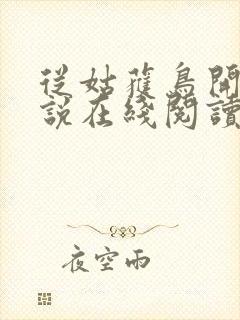 從姑獲鳥開
說在綫閱讀
夜空雨